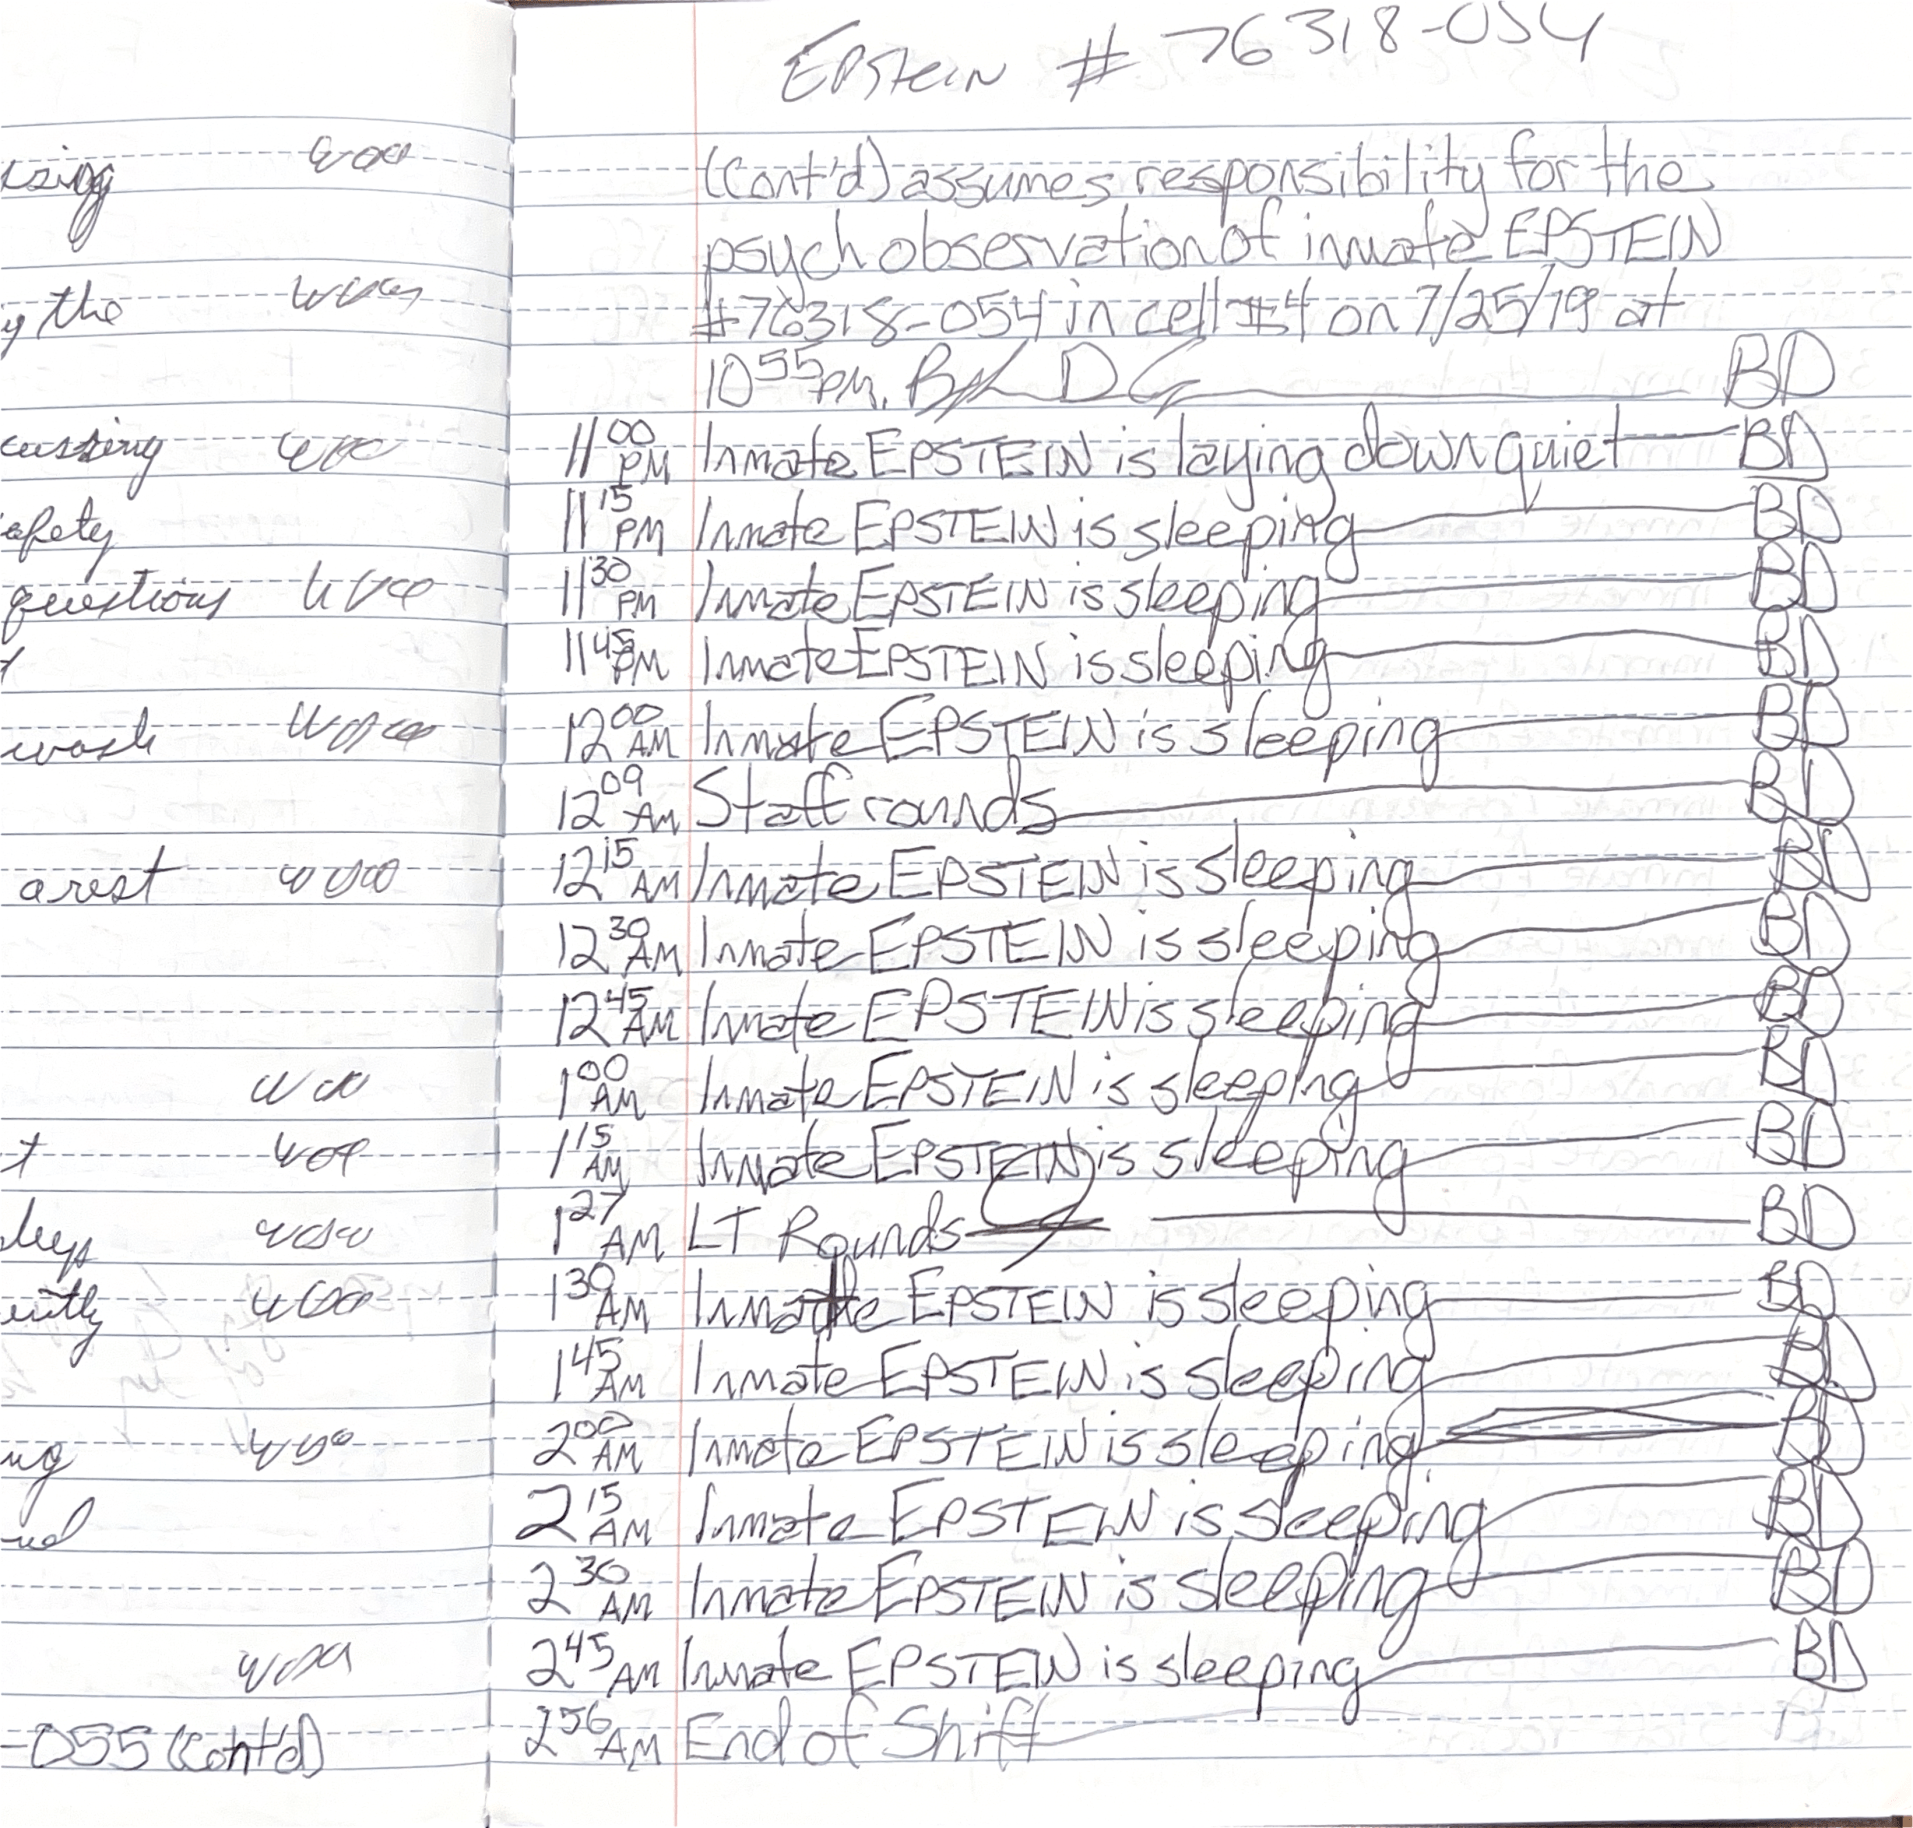 Epstein # 76318-054
(Cont'd) assumes responsibility for the
psych observation of inmate EPSTEIN
#76318-054 in cell #4 on 7/25/19 at
10 55 PM. BD
11 00 PM Inmate EPSTEIN is laying down quiet BD
11 15 PM Inmate EPSTEIN is sleeping BD
11 30 PM Inmate EPSTEIN is sleeping BD
11 45 PM Inmate EPSTEIN is sleeping BD
12 00 AM Inmate EPSTEIN is sleeping BD
12 09 AM Staff rounds BD
12 15 AM Inmate EPSTEIN is sleeping BD
12 30 AM Inmate EPSTEIN is sleeping BD
12 45 AM Inmate EPSTEIN is sleeping BD
1 00 AM Inmate EPSTEIN is sleeping BD
1 15 AM Inmate EPSTEIN is sleeping BD
1 27 AM LT Rounds BD
1 30 AM Inmate EPSTEIN is sleeping BD
1 45 AM Inmate EPSTEIN is sleeping BD
2 00 AM Inmate EPSTEIN is sleeping BD
2 15 AM Inmate EPSTEIN is sleeping BD
2 30 AM Inmate EPSTEIN is sleeping BD
2 45 AM Inmate EPSTEIN is sleeping BD
2 56 AM End of Shift
the
questions
wash
a rest
-055 (Cont'd)